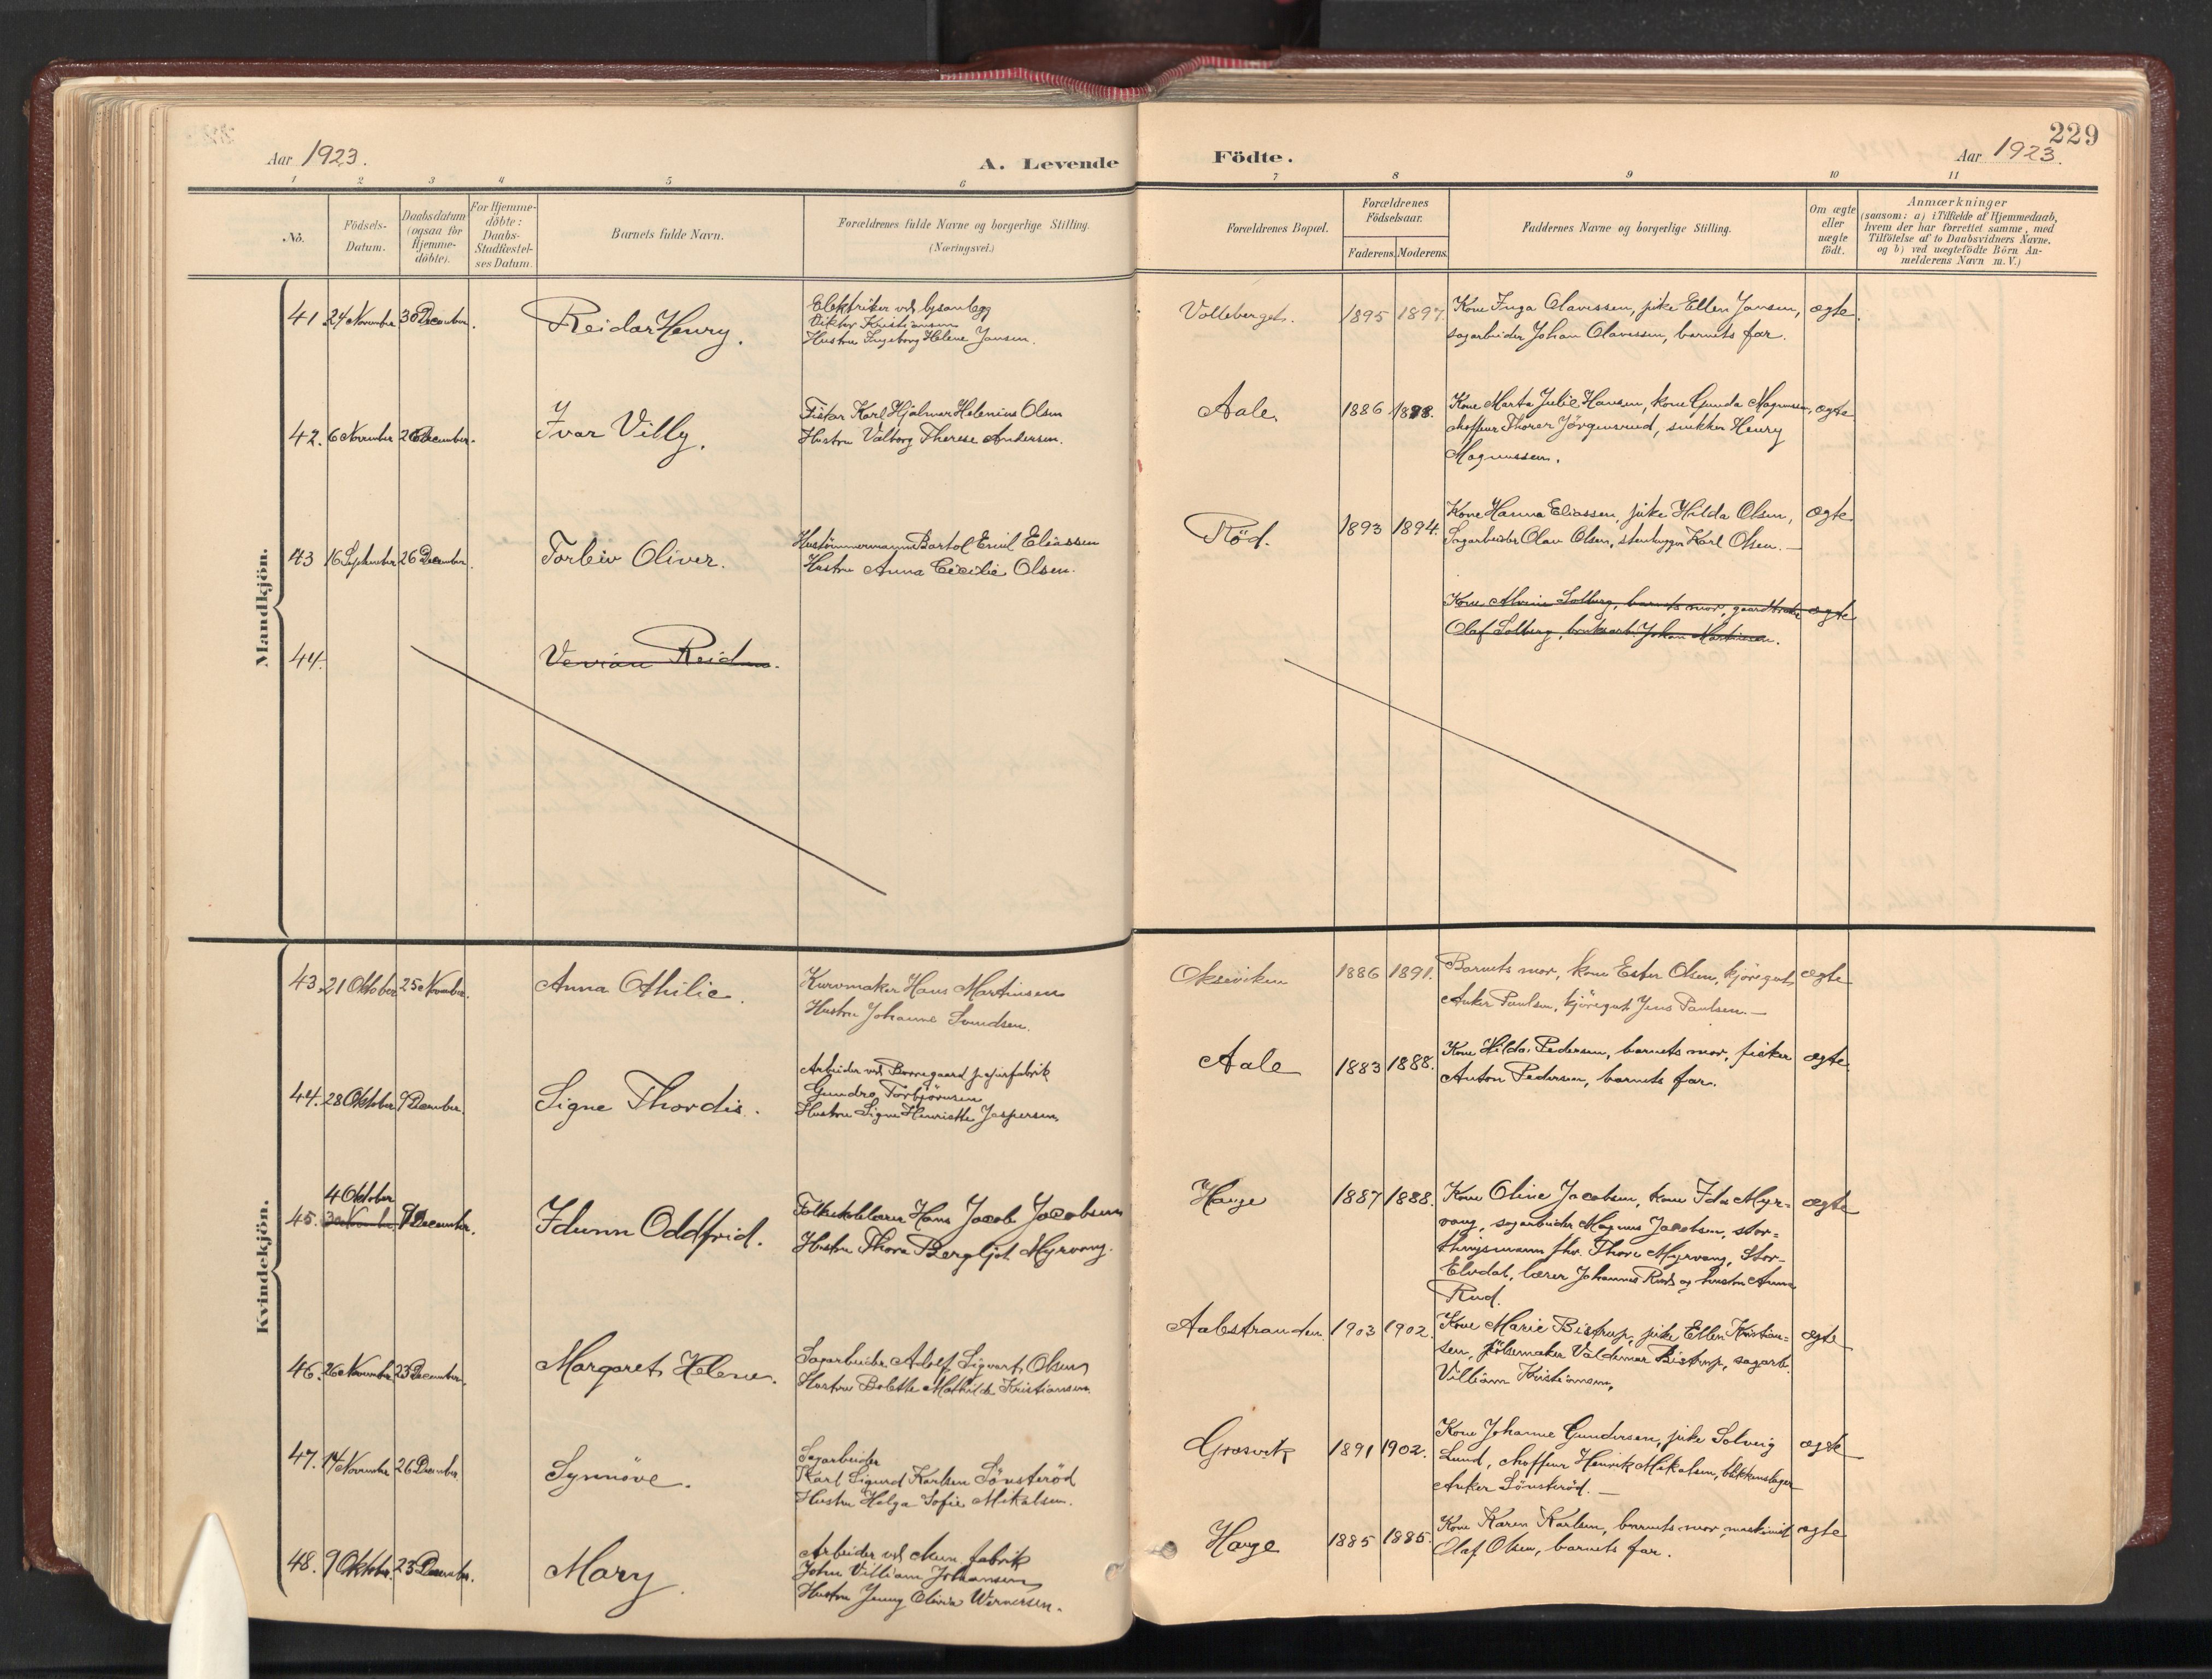 229
Aar 1923.
A. Levende
Födte.
Aar 1923.
1 2 3 4 5 6 7 8 9 10 11
No.
Födsels-
Datum.
Daabsdatum
(ogsaa for
Hjemme-
döbte).
For Hjemme-
döbte:
Daabs-
Stadfæstel-
ses Datum.
Barnets fulde Navn.
Forældrenes fulde Navne og borgerlige Stilling.
(Næringsvei.)
Forældrenes Bopæl.
Forældrenes
Födselsaar.
Faderens. Moderens.
Faddernes Navne og borgerlige Stilling.
Om ægte
eller
uægte
födt.
Anmærkninger
(saasom: a) i Tilfælde af Hjemmedaab,
hvem der har forrettet samme, med
Tilföielse af to Daabsvidners Navne.
og b) ved uægtefödte Börn An-
melderens Navn m. V.)
Mandkjön.
41. 24 November 30 December. Reidar Henry.
Elektriker ved lysanlegg
Viktor Kristiansen
Hustru Ingeborg Helene Jansen.
Volleberget. 1895 1897.
Kone Inga Olavesen, pike Ellen Jansen,
sagarbeider Johan Olavesen, barnets far.
ægte.
42. 6 November 26 December. Ivar Villy.
Fisker Karl Hjalmar Helenius Olsen
Hustru Valborg Therese Andersen.
Aale. 1886 1888.
Kone Marta Julie Hansen, kone Gunda Magnussen,
choffeur Thorer Jörgensrud, snekker Henry
Magnussen.
ægte
43 16 September 26 December. Torleiv Oliver.
Hustömmermann Bartol Emil Eliassen
Hustru Anna Cecilie Olsen.
Röd. 1893 1894.
Kone Hanna Eliassen, pike Hilda Olsen,
Sagarbeider Olav Olsen, stenhugger Karl Olsen. —
ægte.
44. Verian Reidar.
Kone Alvine Solberg, barnets mor, gaardbruker
Olaf Solberg, bruksarb. Johan Martinsen.
ægte
Kvindekjön.
43. 21 Oktober 25 November. Anna Othilie.
Kurvmaker Hans Martinsen
Hustru Johanne Svendsen.
Okseviken 1886 1891.
Barnets mor, kone Ester Olsen, kjöregut
Anker Paulsen, kjöregut Jens Paulsen. —
ægte
44. 28 Oktober 9 December. Signe Thordis.
Arbeider ved Borregaard papirfabrik
Gundro Torbjörnsen
Hustru Signe Henriette Jespersen.
Aale 1883 1888.
Kone Hilda Pedersen, barnets mor, fisker
Anton Pedersen, barnets far.
ægte.
4 Oktober
45. 30 November 9 December. Idunn Oddfrid.
Folkeskolelærer Hans Jacob Jacobsen
Hustru Thora Bergljot Myrvang.
Hauge 1887 1888.
Kone Oline Jacobsen, kone Ida Myr-
vang, sagarbeider Magnus Jacobsen, stor-
thingsmann fhv. Thore Myrvang, Stor-
Elvdal, lærer Johannes Rud og hustru Anna
Rud.
ægte
46. 26 November 23 December. Margaret Helene.
Sagarbeider Adolf Sigvart Olsen
Hustru Bolette Mathilde Kristiansen.
Aalestranden. 1903 1902.
Kone Marie Bistrup, pike Ellen Kristian-
sen, pölsemaker Valdemar Bistrup, sagarb.
Villiam Kristiansen,
ægte
47. 14 November 26 December. Synnöve.
Sagarbeider
Karl Sigurd Karlsen Sönsteröd
Hustru Helga Sofie Mikalsen.
Gräsvik 1891 1902.
Kone Johanne Gundersen, pike Solveig
Lund, choffeur Henrik Mikalsen, blikkenslager
Anker Sönsteröd. —
ægte
48. 9 Oktober. 23 December. Mary.
Arbeider ved chem. fabrik
John Villiam Johansen
Hustru Jenny Olivia Wernersen.
Hauge 1885 1885.
Kone Karen Karlsen, barnets mor, maskinist
Olaf Olsen, barnets far.
ægte